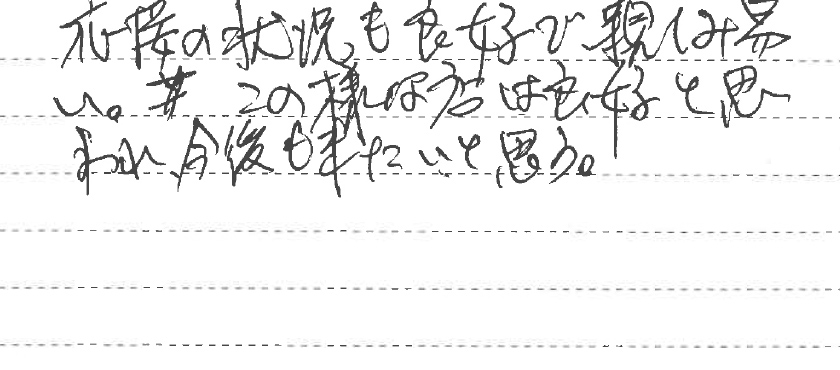 応接の状況も良好で、親しみ易
い。 この様な店は良好と思
われ、今後も来たいと思う。